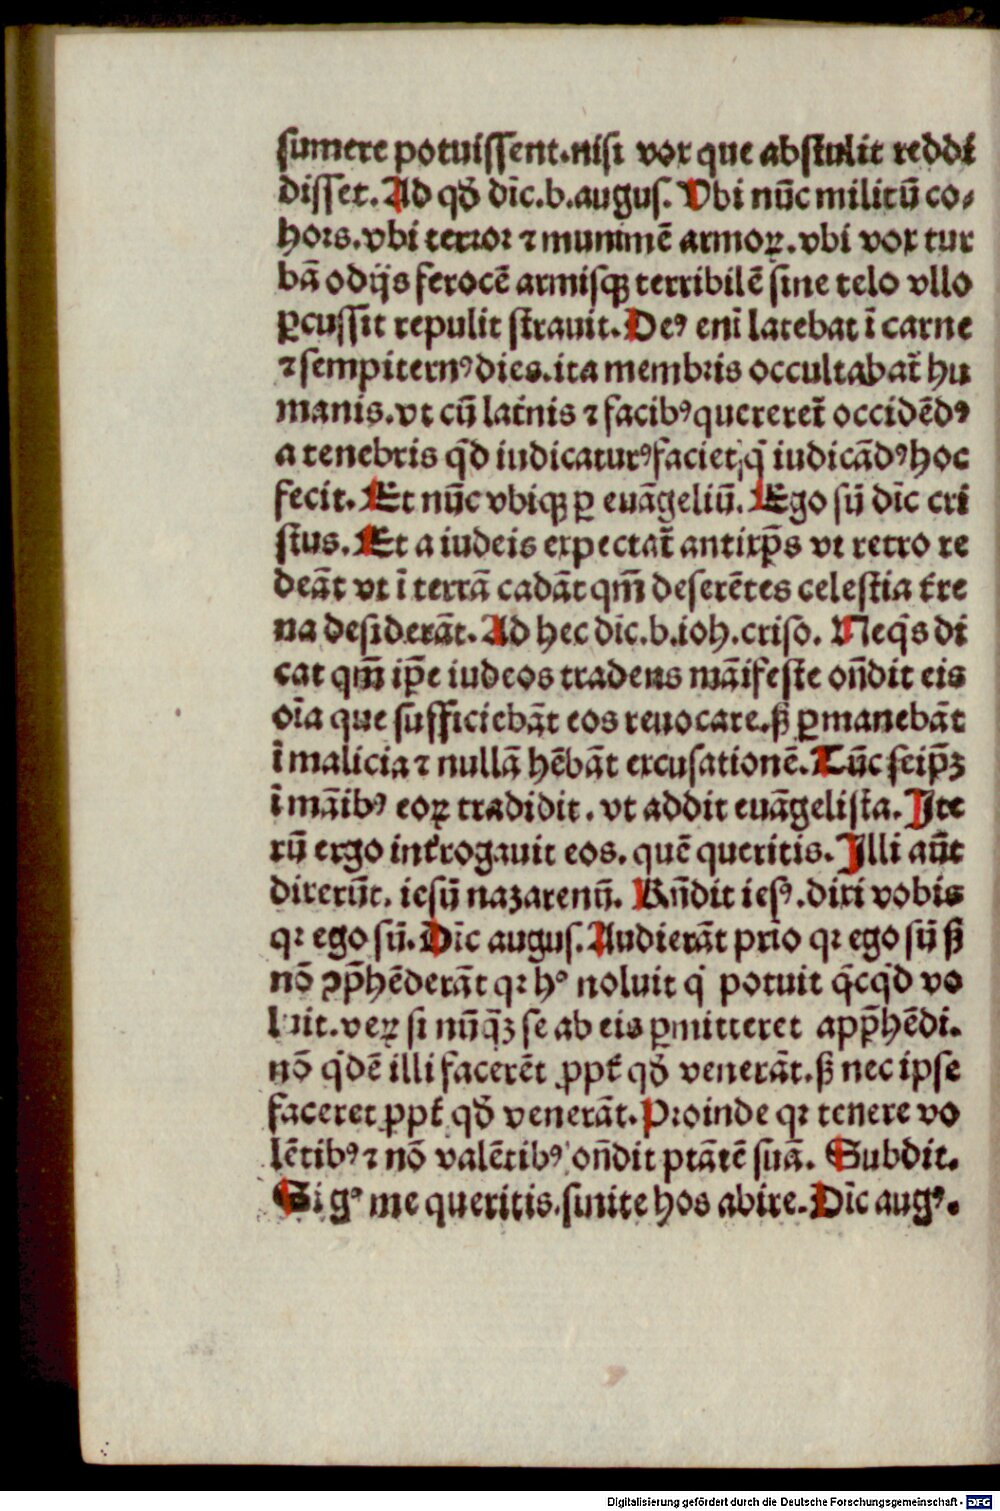 sumere potuissent.nisi vox que abstulit reddi
disset. Ad qđ dic̄.b.augus. Vbi nūc militū co⸗
hors.vbi terror ⁊ munimē armoꝝ.vbi vox tur
bā odijs ferocē armisqꝫ terribilē sine telo vllo
ꝑcussit repulit strauit. Deꝰ eni latebat ī carne
⁊ sempiternꝰ dies.ita membris occultabat̄ hu
manis.vt cū lat̄nis ⁊ facibꝰ quereret̄ occidēdꝰ
a tenebris qd̄ iudicaturꝰ faciet, q̇ iudicādꝰ hoc
fecit. Et nūc vbiqꝫ ꝑ euāgeliū. Ego sū dic̄ cri
stus. Et a iudeis expectat̄ antixp̄s vt retro re
deāt vt ī terrā cadāt qm̄ deserētes celestia t̄re
na desiderāt. Ad hec dic̄.b.ioh.criso. Neq̇s di
cat qm̄ ip̄e iudeos tradens māifeste on̄dit eis
oīa que sufficiebāt eos reuocare.ꝭꝫ ꝑmanebāt
ī malicia ⁊ nullā hēbāt excusationē. Tūc seip̄ꝫ
ī māibꝰ eoꝝ tradidit. vt addit euāgelista. Ite
rū ergo int̄rogauit eos. quē queritis. Illi aūt
dixerūt. iesū nazarenū. Rn̄dit iesꝰ.dixi vobis
qꝛ ego sū. Dic̄ augus. Audierāt prīo qꝛ ego sū ꝭꝫ
nō ꝯp̄hēderāt qꝛ hᵒ noluit q̇ potuit q̇cq̇d vo
luit.veꝝ si nūq̄ꝫ se ab eis ꝑmitteret app̄hēdi.
nō q̇dē illi facerēt ꝓpt̄ qđ venerāt.ꝭꝫ nec ipse
faceret ꝓpt̄ qđ venerāt. Proinde qꝛ tenere vo
lētibꝰ ⁊ nō valētibꝰ on̄dit ptātē suā. Subdit.
Si gᵒ me queritis.sinite hos abire. Dic̄ augꝰ.
Digitalisierung gefördert durch die Deutsche Forschungsgemeinschaft - DFG